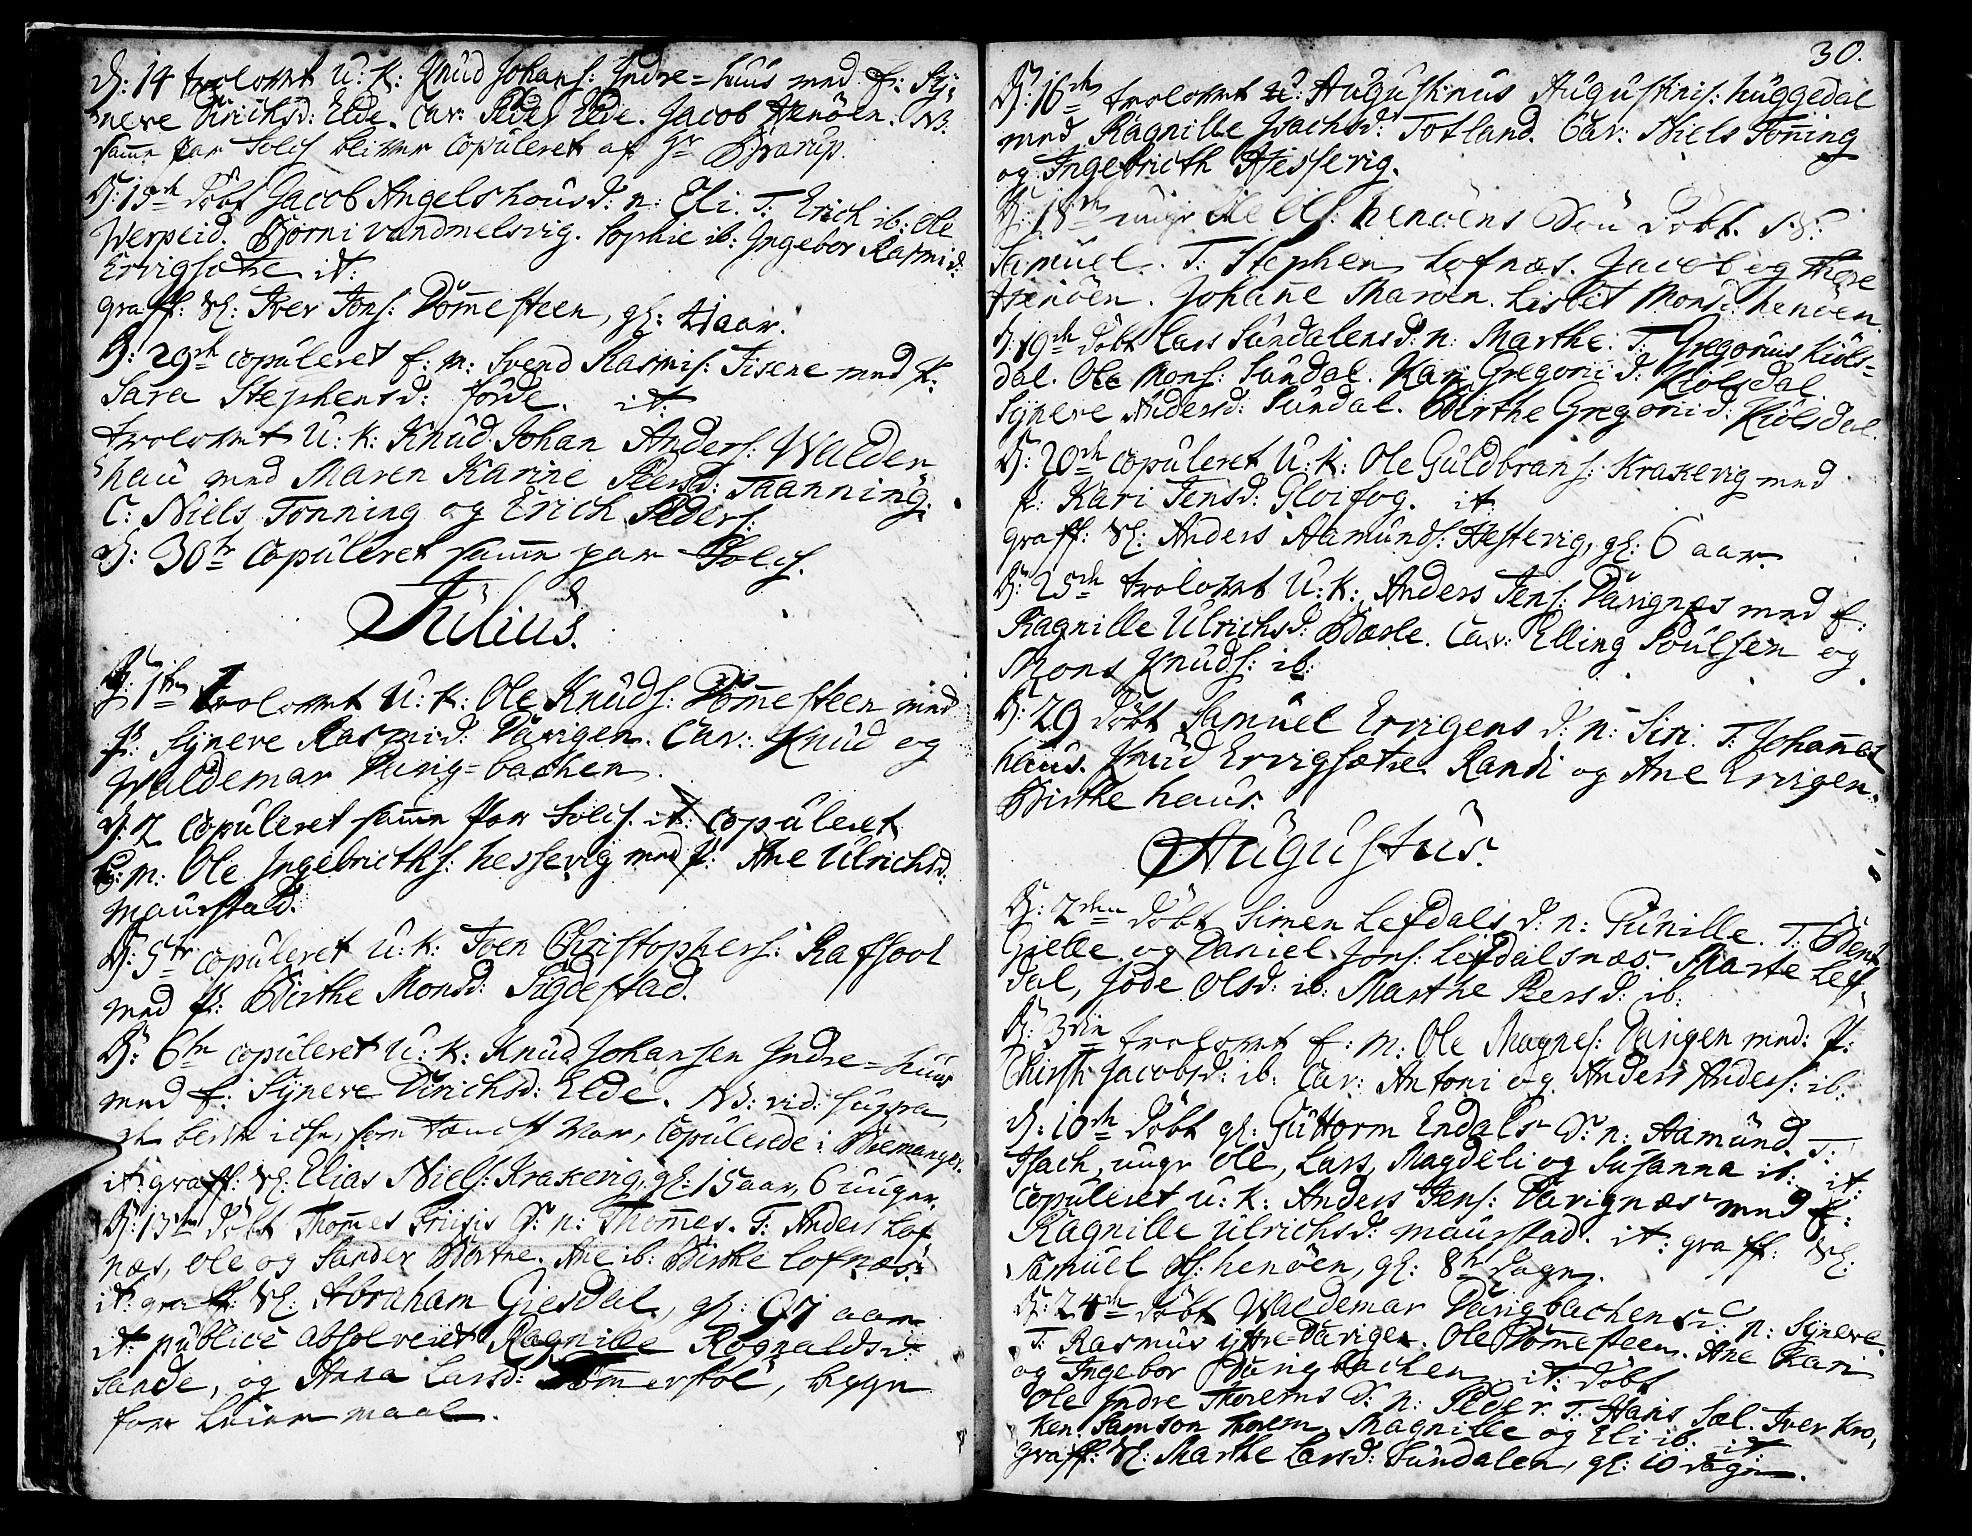 D: 14 trolovet U: K: Knud Johans: Indre=huus med P: Sy,
neve Ulrichsd: Elde. Cav: Peder Elde. Jacob Henöen. NB.
samme par Folch bliver copuleret af Hr Brarup.
D: 15de döbt Jacob Angelshougs d: n: Eli. T: Erich ib: Ole
Werpeid. Biorni vandmelsvig. Sophie ib: Ingebor Rasmid:
Ervigsætre it:
graff: Sl: Iver Jons: Dömmesteen, gl: 41 aar.
D: 29de copuleret E: M: Svend Rasmis: Tisene med P:
Sara Stephensd: förde. it:
trolovet U: K: Knud Johan Anders: Walden
hau med Maren Karine Peersd: Taanning.
C: Niels Tonning og Erich Peders:
D: 30te Copuleret samme par Folch.
Julius.
D: 1ste trolovet U: K: Ole Knuds: Dömmesteen med
P: Synneve Rasmisd: Davigen. Cav: Knud og
Waldemar Davig=bachen.
D: 2 copuleret samme par Folch. it: copuleret
E: M: Ole Ingebricths: hessevig med P: Ane Ulrichsd:
maurstad.
D: 5te copuleret U: K: Iven Christophers: Rafsool
med P: Birthe Monsd: Sigdestad.
D: 6te copuleret U: K: Knud Johansen Indre=huus
med P: Syneve Ulrichsd: Elde. NB: vid: supra,
blev iche, som tænckt var, copulerede i Bremanger.
it: graff: Sl: Elias Niels: Krakevig, gl: 15 aar, 6 uuger.
D: 13de döbt Thommes Friisis S: n: Thommes. T: Anders Lof
næs, Ole og Sander Bertne. Ane ib: Birthe Lofnæs.
it: graff: Sl: Abraham Giesdal, gl: 97 aar
it: publicè absolveret Ragnille Rognaldsd:
Sande, og Anna Larsd: Tömmerstöl, begge
for Leiermaal.
30.
D: 16de trolovet U: Augustinus Augustinis: huggedal
med Ragnille Isachsd: Totland. Cav: Niels Toning
og Ingebricth Hessevig.
D: 18de unge Ole Ols: henöens Sön döbt. n:
Samuel. T: Stephen Lofnæs. Jacob og Peder
Henöen. Johanne Maröen. Lisbet Monsd: henöen.
D: 19de döbt Lars Sundalens d: n: Marthe. T: Gregorius Kiöls=
dal. Ole Mons: Sundal. Kari Gregorii d: Kiölsdal
Synneve Andersd: Sundal. Birthe Gregorii d: Kiölsdal.
D: 20de copuleret U: K: Ole Guldbrans: Krakevig med
P: Kari Jensd: Gloifog. it:
graff: Sl: Anders Aamunds: Hestevig, gl: 6 aar.
D: 25de trolovet U: K: Anders Jens: Davignæs med P:
Ragnille Ulrichsd: Bæsle. Cav: Elling Poulsen og
Mons Knuds: ib:
D: 29 döbt Samuel Ervigens d: n: Siri. T: Johannes
haus. Knud Ervigsætre. Randi og Ane Ervigen.
Birthe haus.
Augustus.
D: 2den döbt Simen Lefdals d: n: Pernille. T: Bent
Gielle og Daniel Jons: Lefdalsnæs. Marte Lef
dal, Jöde Olsd: ib: Marthe Persd: ib:
D: 3die trolovet E: M: Ole Magnes: Davigen med P:
Chirsti Jacobsd: ib: Cav: Antoni og Anders Anders: ib:
D: 10de döbt gl: Guttorm Endals S: n: Aamund. T:
Isach, unge Ole, Lars, Magdeli og Susanna ib: it:
copuleret U: K: Anders Jens: Davignæs med P:
Ragnille Ulrichsd: maurstad. it: graff: Sl:
Samuel Ols: henöen, gl: 8te dage.
D: 24de döbt Waldemar Davigbachens d: n: Syneve.
T: Rasmus ytre=Davigen. Ole Dömmesteen. Ane Kari
og Ingebor Davigbachen it: döbt
Ole Indre Thorems S: n: Peder. T: Hans Sæl. Iver Kro,
ken. Samson Thorem. Magnille og Eli ib: it:
graff: Sl: Marthe Larsd: Sundalen, gl: 10 dage.